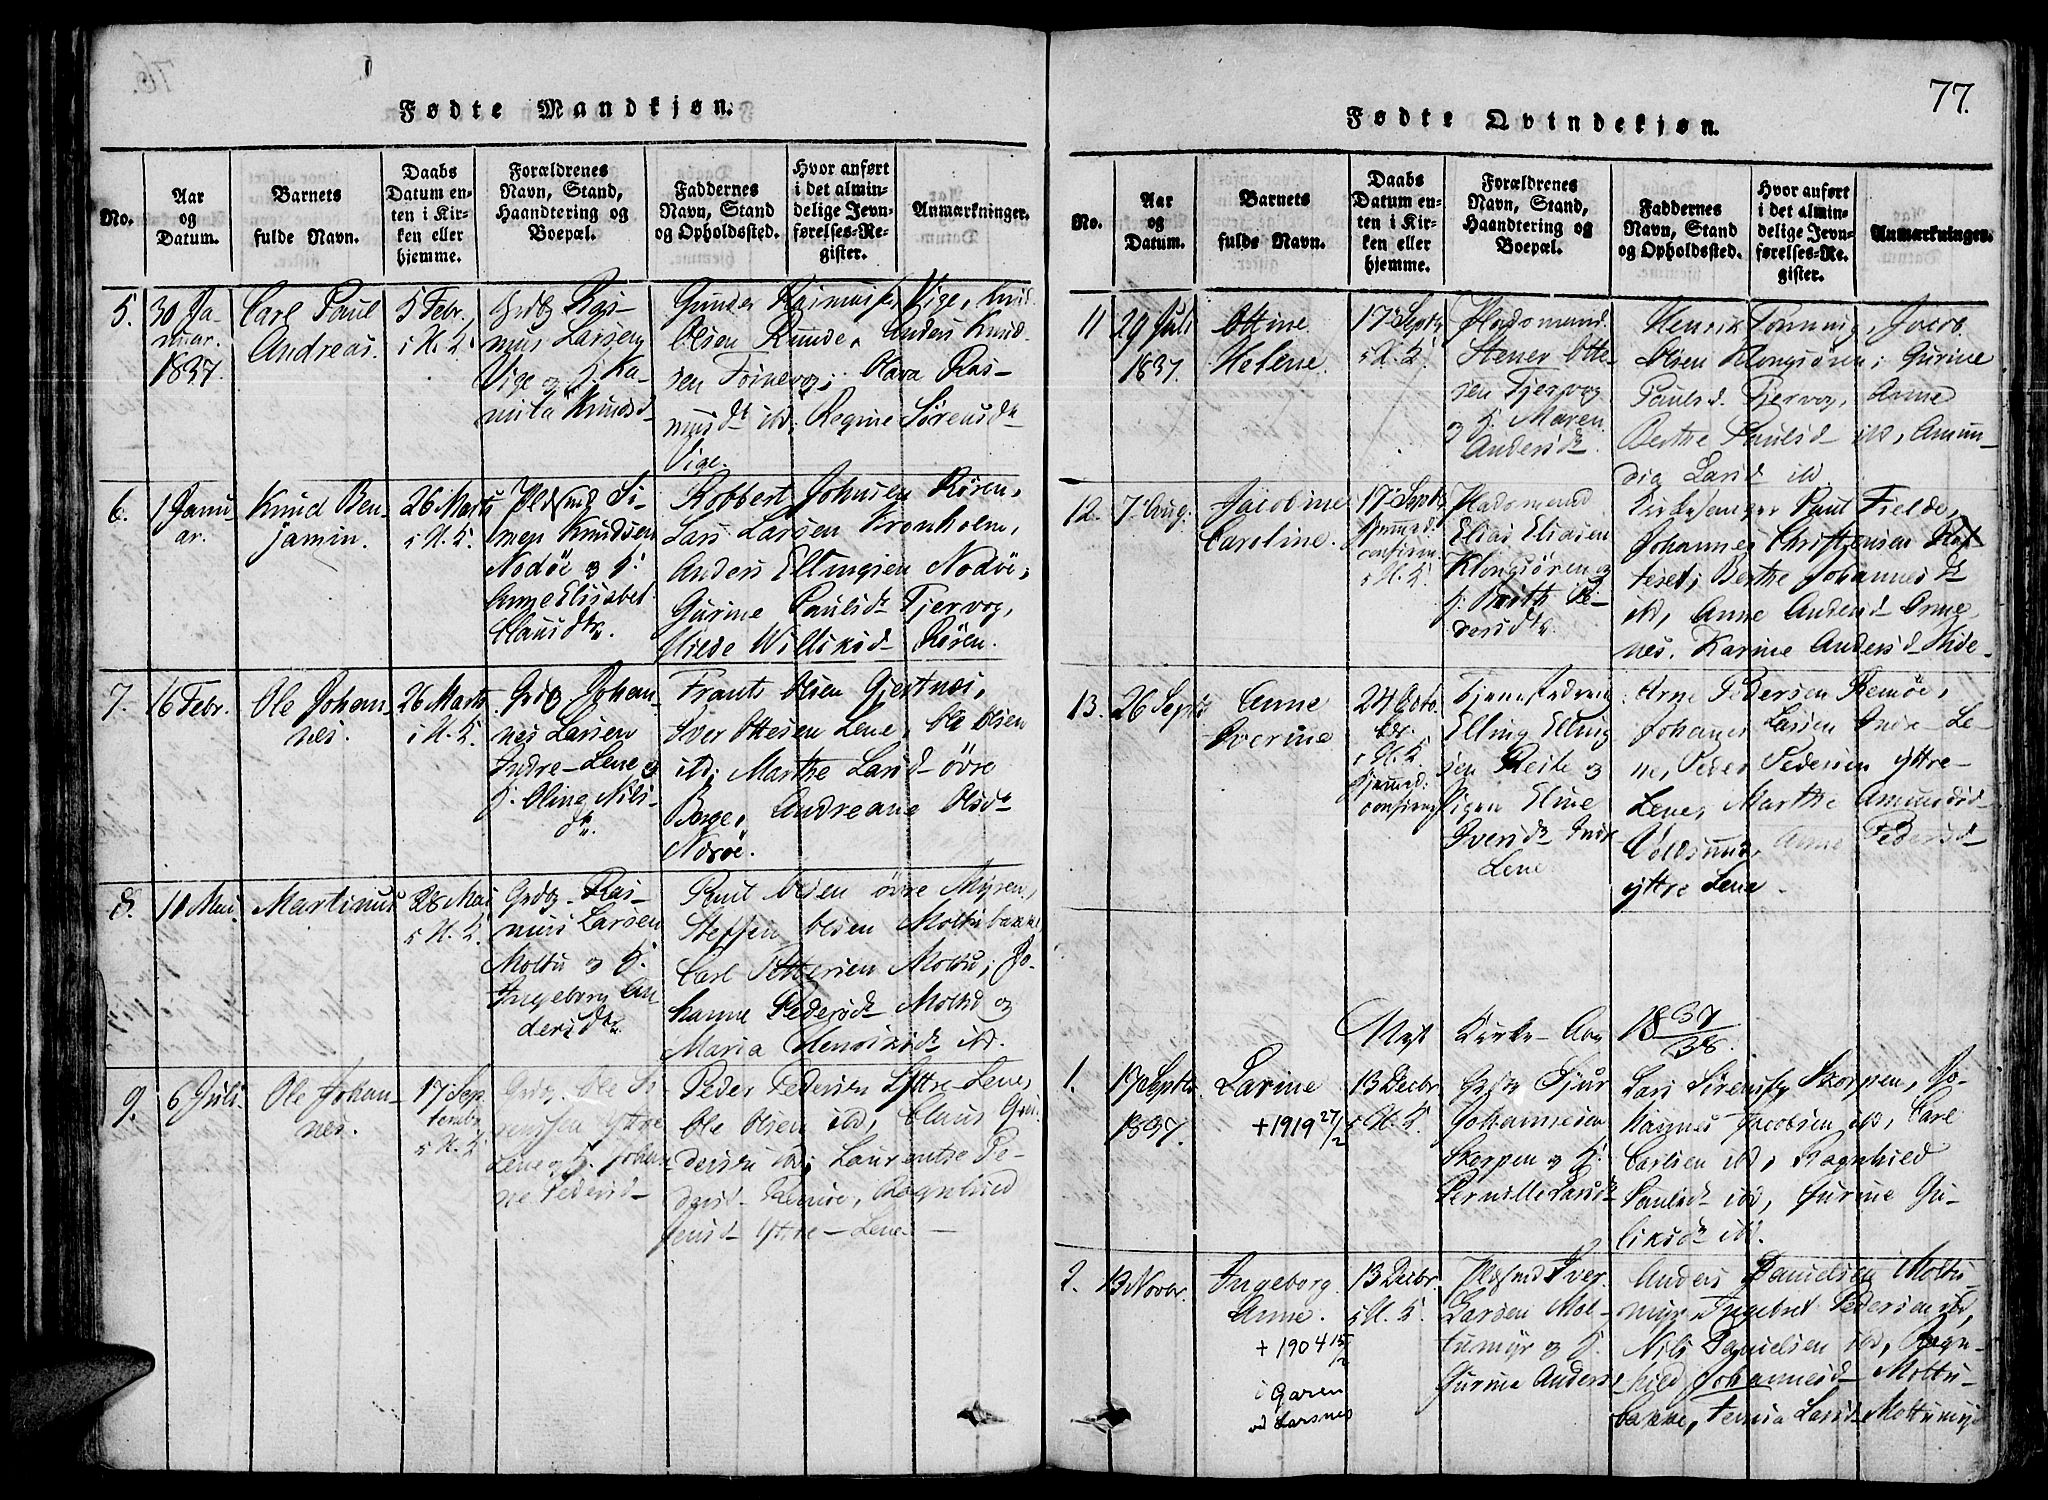 Fødte Mandkjøn.
No.
Aar
og
Datum.
Barnets
fulde Navn.
Daabs
Datum en-
ten i Kir-
ken eller
hjemme.
Forældrenes
Navn, Stand,
Haandtering og
Boepæl.
Faddernes
Navn, Stand
og Opholdssted.
Hvor anført
i det almin-
delige Jevn-
førelses-Re-
gister.
Anmærkninger.
5.
30 Ja-
nuar.
1837.
Carl Paul
Andreas.
5 Febr.
i H. K.
Grdbr Ras-
mus Larsen
Vige og K. Ka-
mila Knudsd
Gunder Rasmusen Vige, Knud
Olsen Runde, Anders Knud-
sen Torvevog; Olava Ras-
musdr ibd; Regine Sørensdr
Vige.
6.
1 Janu-
ar.
Knud Ben-
jamin.
26 Marts
i H. K.
Pladsmd Si-
men Knudsen
Nodøe og K.
Anne Elisabet
Clausdr.
Robbert Johnsen Røren,
Lars Larsen Kronholm,
Anders Ellingsen Nodøe;
Gurine Paulsdr Tjervog,
Røren.
7.
16 Febr.
Ole Johan-
nes.
26 Marts
i H. K.
Grdbr Johan-
nes Larsen
Indre-Lene og
K. Oline Nils-
dr.
Frants Olsen Gjertnes,
Iver Ottesen Lene, Ole Olsen
ibd; Marthe Larsd øvre
Berge, Andreane Olsdr
Nærøe.
8.
11 Mai
Martinus
28 Mai
i H. K.
Grdbr Ras-
mus Larsen
Moltu og K.
Ingeborg An-
dersdr
Paul Olsen øvre Myren,
Steffen Olsen Moltubakke
Carl Pettersen Moltu; Jo-
hanne Pedersdr Moltu og
Maria Henrikсdr ibd.
9.
6 Juli
Ole Johan-
nes.
17 Sep-
tembr
i H. K.
Grdbr Ole Si-
Yttre
Lene og K. Johan-
ne Pedersd
Peder Pedersen Yttre-Lene,
Ole Olsen ibd, Claus
dersen ibd; Laurentse Pe-
dersd Remøe, Ragnhild
Jensd Yttre-Lene.
77.
Fødte Qvindekjøn.
No.
Aar
og
Datum.
Barnets
fulde Navn.
Daabs
Datum en-
ten i Kir-
ken eller
hjemme.
Forældrenes
Navn, Stand,
Haandtering og
Boepæl.
Faddernes
Navn, Stand
og Opholdssted.
Hvor anført
i det almin-
delige Jevn-
førelses-Re-
gister.
Anmærkninger.
11
29 Juli
1837.
Ottine
Helene.
17 Septr
i H. K.
Pladsmand
Stener Otte-
sen Tjervog
og K. Maren
Andersdr.
Henrik Tonning, Jacob
Olsen Klongsøren; Gurine
Paulsd Tjervog, Anne
Berthe Paulsd ibd, Amun-
dia Larsd ibd
12.
7 Aug.
Jacobine
Caroline.
17 Septr
hjemmed:
confirm.
i H. K.
Pladsmand
Elias Eliasen
Klongsøren og
K. Berith Pe-
dersdr.
Kirkesanger Paul Fielde,
Johannes Christensen
Berthe Johannesdr
ibd, Anne Andersd
nes. Karine Andersd
13.
26 Septr
Anne
Iverine
24 Octo-
ber
i H. K.
hjemmed:
Elling Elling
sen Reite og
Pigen Eline
Iversdr Indr
Lene
Arne Pedersen Remøe,
Johannes Larsen Indre Le-
ne, Peder Pedersen yttre-
Lene, Marthe Amundsd
Voldsund, Anne Pedersd
yttre Lene.
Nyt Kirke-Aar 1837/38.
1.
17 Septr.
1837.
Larine
+1919 27/2
13 Decbr
i H. K.
Grdbr Sjur
Johannesen
Skorpen og K.
Pernille Larsdr
Lars Sjursen Skorpen, Jo-
hannes Jacobsen ibd, Carl
Carlsen ibd, Ragnhild
Paulsdr ibd, Gurine Gu-
liksdr ibd.
2.
13 Novbr.
Ingeborg
Anne.
+ 1904 15/2
i Garen
vd Larsnes
13 Decbr
i H. K.
Pladsmd Iver
Larsen Mol-
tumyr og K.
Gurine Anders-
Anders Danielsen Moltu-
myr, Ingebret Pedersen ibd,
Nils Danielsen ibd, Ragn-
hild Johannesd Moltu-
bakke, Larsd Moltumyr